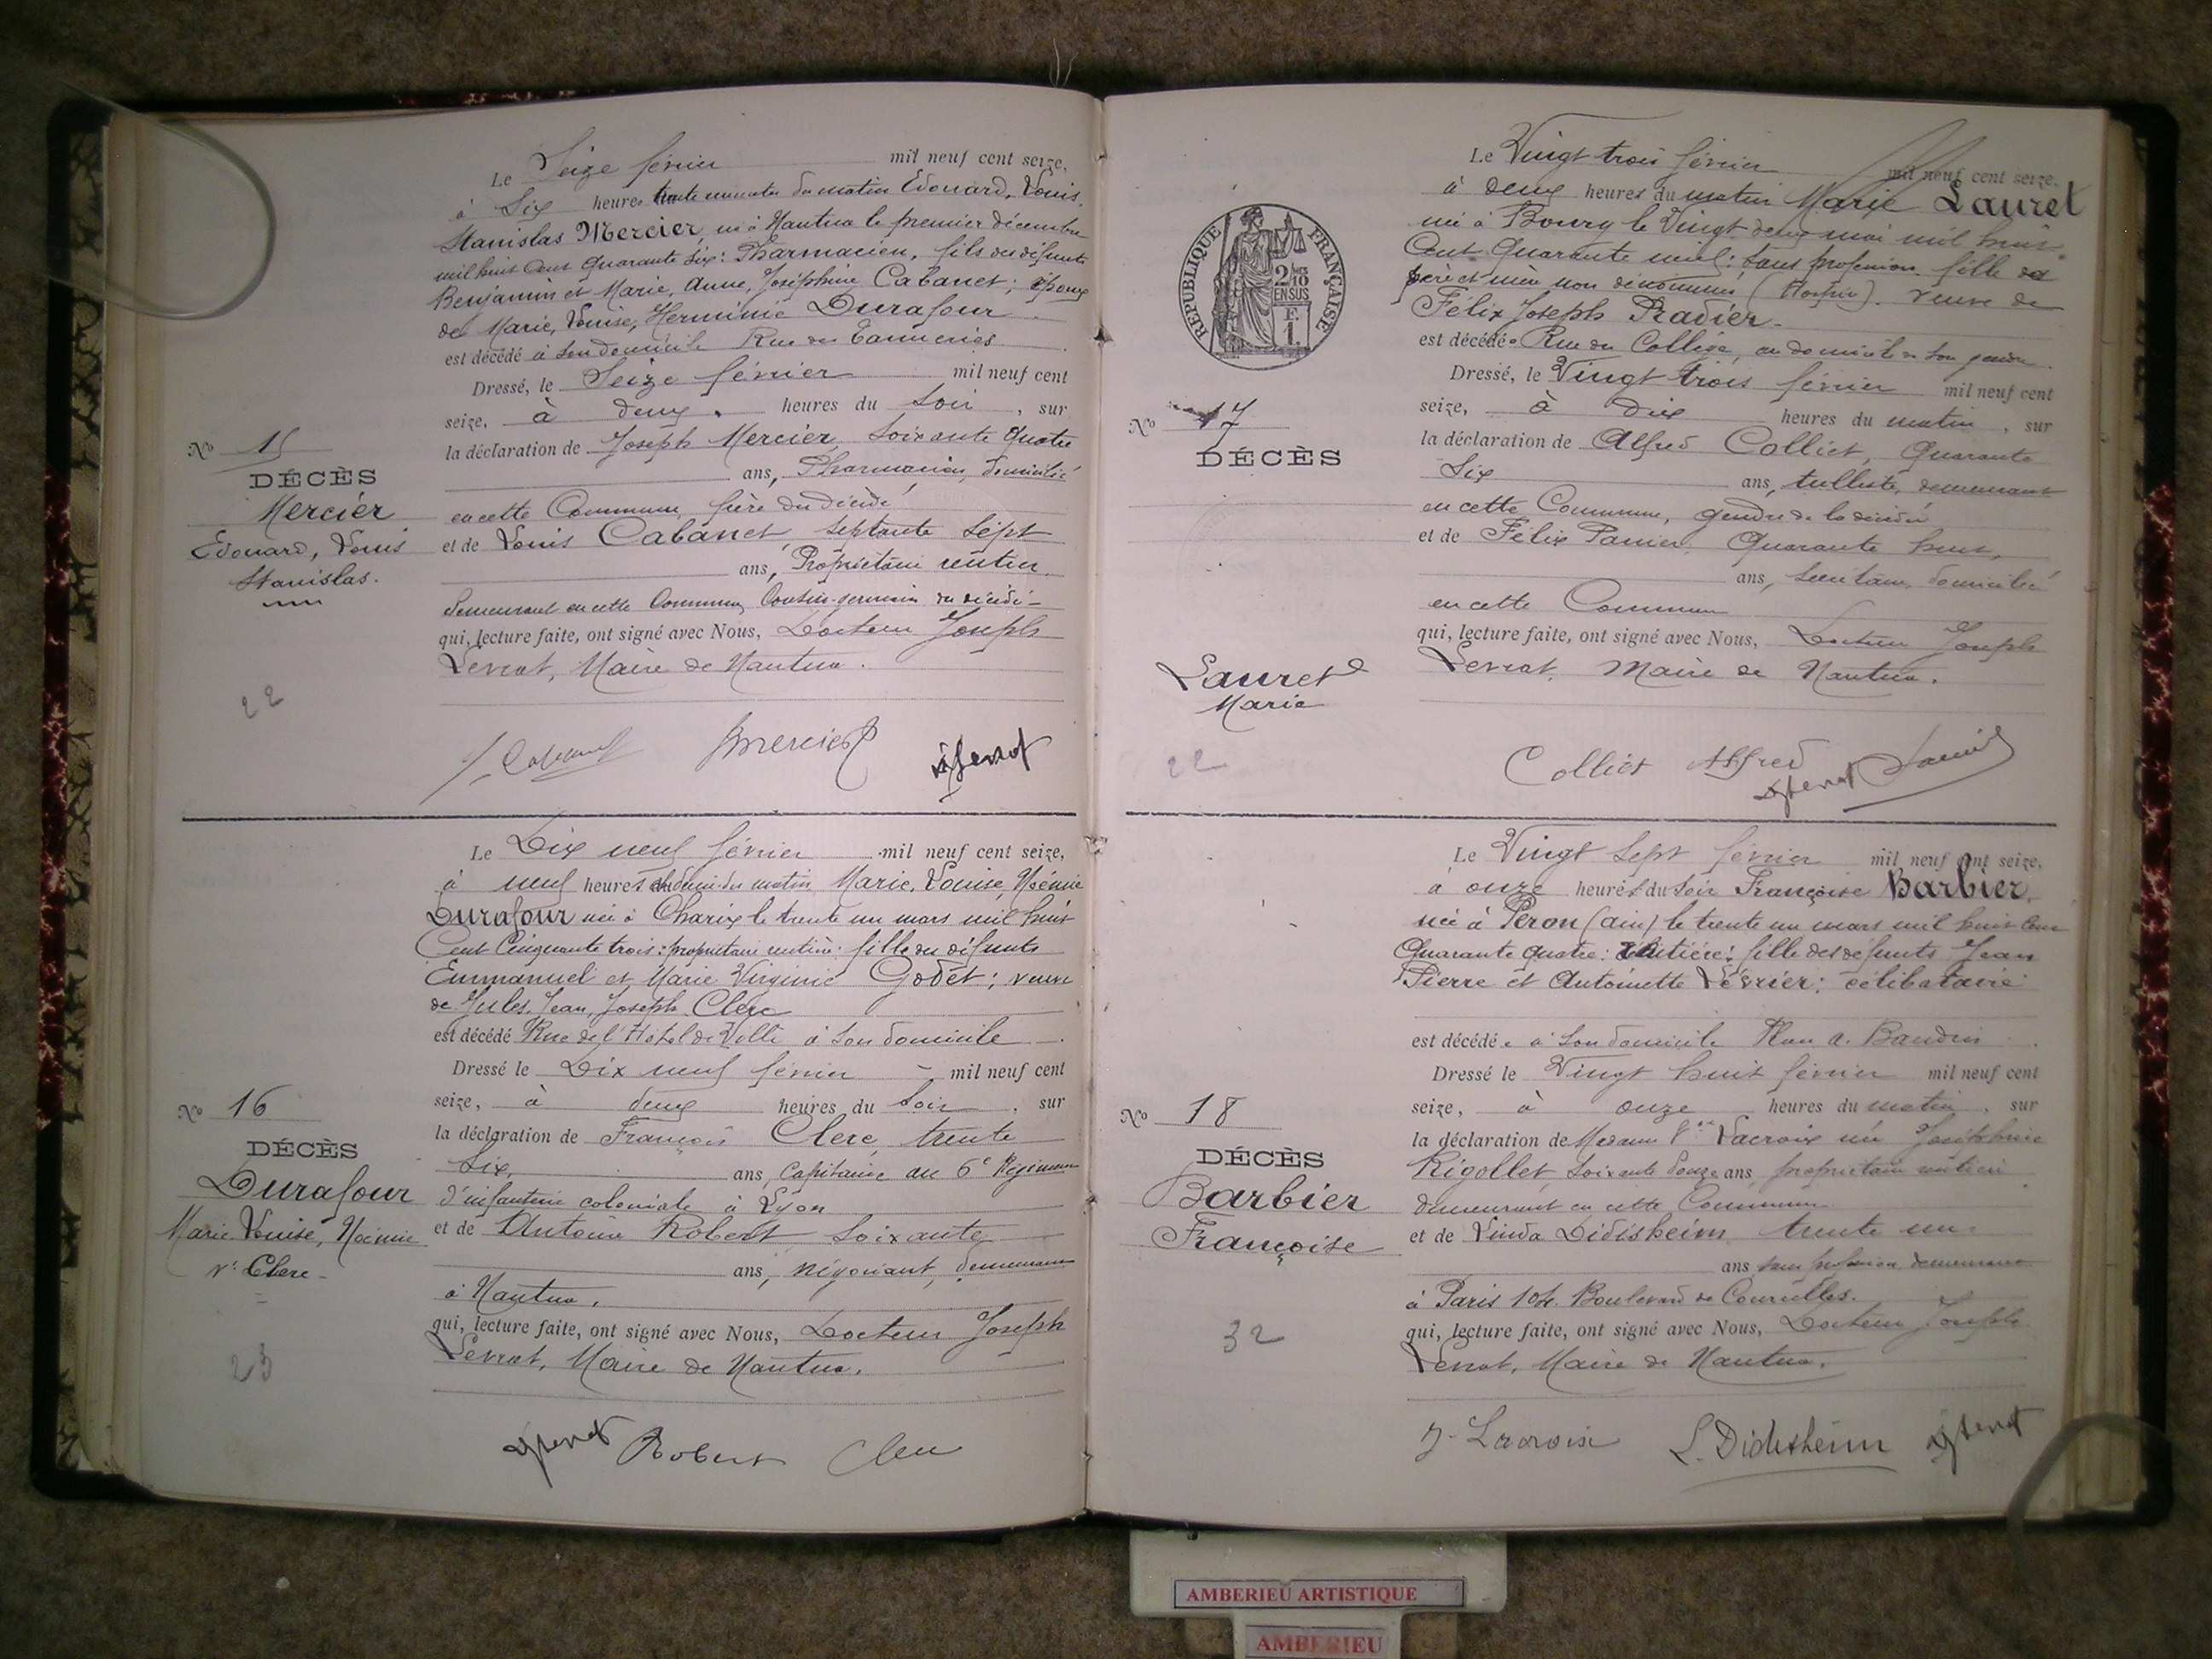 Le Seize février mil neuf cent seize,
à Six heures trente minutes du matin Edouard, Louis,
Stanislas Mercier, né à Nantua le premier décembre
mil huit cent quarante six: Pharmacien, fils des défunts
Benjamin et Marie, Anne, Joséphine Cabanet; époux
de Marie, Louise, Herminie Durafour
est décédé à son domicile Rue des Tanneries
Dressé, le Seize février mil neuf cent
seize, à deux heures du Soir, sur
la déclaration de Joseph Mercier, Soixante quatre
ans, Pharmacien, domicilié
en cette Commune, frère du décédé
et de Louis Cabanet, Septante Sept
ans, Propriétaire rentier,
demeurant en cette Commune Cousin-germain du décédé
qui, lecture faite, ont signé avec Nous, Docteur Joseph
Levrat, Maire de Nantua.
No 15
DÉCÈS
Mercier
Edouard, Louis
Stanislas.
22
Mercier
Le Dix neuf février mil neuf cent seize,
à neuf heures du matin Marie, Louise, Noémie
Durafour née à Charix le trente un mars mil huit
Cent Cinquante trois: propriétaire rentière: fille des défunts
Emmanuel et Marie Virginie Godet; veuve
de Jules, Jean, Joseph Clerc
est décédé Rue de l'Hôtel de Ville à son domicile
Dressé le Dix neuf février mil neuf cent
seize, à deux heures du Soir, sur
la déclaration de François Clerc, trente
Six, ans, Capitaine au 6e Régiment
d'infanterie coloniale à Lyon
et de Antoine Robert Soixante
ans, négociant, demeurant
à Nantua.
qui, lecture faite, ont signé avec Nous, Docteur Joseph
Levrat, Maire de Nantua.
No 16
DÉCÈS
Durafour
Marie Louise, Noémie
Ve Clerc
23
Robert Clerc
RÉPUBLIQUE FRANÇAISE
2/10 EN SUS
F. 1.
Le Vingt trois février mil neuf cent seize,
à deux heures du matin Marie Lauret
née à Bourg le Vingt deux mai mil huit
Cent Quarante neuf: sans profession fille de
père et mère non dénommés (Hospice). veuve de
Félix Joseph Pradier.
est décédée Rue du Collège, au domicile de son gendre.
Dressé, le Vingt trois février mil neuf cent
seize, à dix heures du matin, sur
la déclaration de Alfred Colliet, Quarante
Six ans, tulliste, demeurant
en cette Commune, gendre de la décédée
et de Félix Panier, Quarante huit,
ans, Secrétaire, domicilié
en cette Commune
qui, lecture faite, ont signé avec Nous, Docteur Joseph
Levrat, Maire de Nantua.
No 17
DÉCÈS
Lauret
Marie
22
Colliet Alfred
Le Vingt Sept février mil neuf cent seize,
à onze heures du Soir Françoise Barbier,
née à Peron (ain) le trente un mars mil huit Cent
Quarante quatre: rentière: fille des défunts Jean
Pierre et Antoinette Levrier: célibataire
est décédée à son domicile Place a. Baudin
Dressé le Vingt huit février mil neuf cent
seize, à onze heures du matin, sur
la déclaration de Madame Vve Lacroix née Joséphine
Rigollet, Soixante douze ans, propriétaire rentière
demeurant en cette Commune
et de Linda Didisheim, trente un
ans sans profession demeurant
à Paris 104. Boulevard de Courcelles.
qui, lecture faite, ont signé avec Nous, Docteur Joseph
Levrat, Maire de Nantua.
No 18
DÉCÈS
Barbier
Françoise
32
J. Lacroix L. Didisheim
AMBERIEU ARTISTIQUE
AMBERIEU